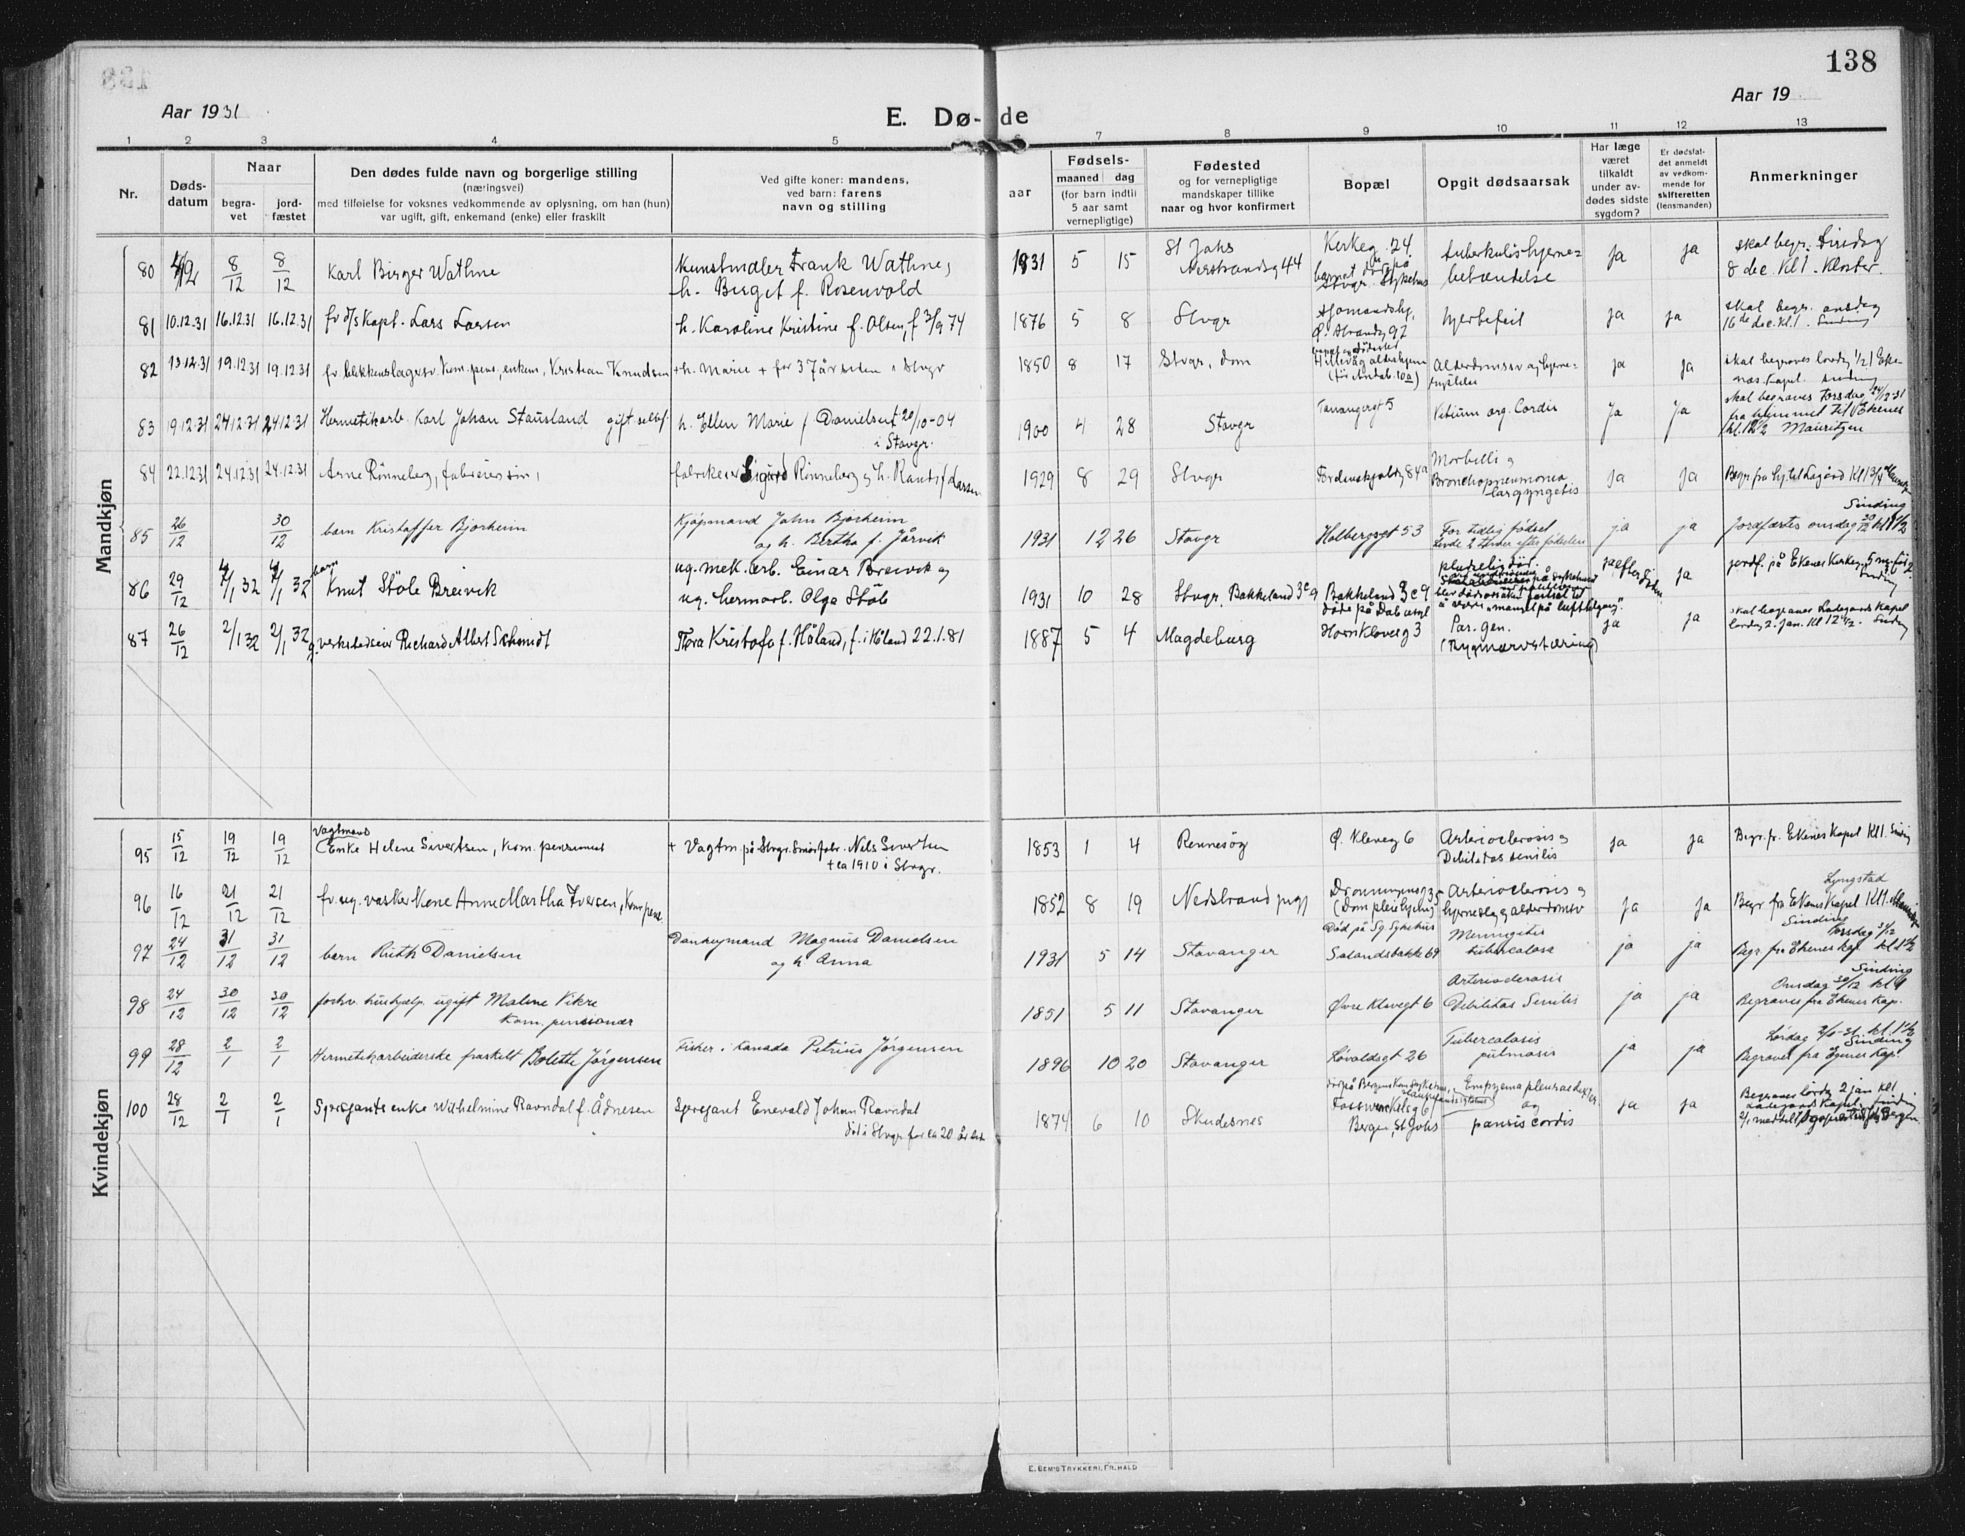 138
Aar 1931
E. Dø- de
Aar 19
1 2 3 4 5 6 7 8 9 10 11 12 13
Nr.
Døds-
datum
Naar
begra-
vet
jord-
fæstet
Den dødes fulde navn og borgerlige stilling
(næringsvei)
med tilføielse for voksnes vedkommende av oplysning, om han (hun)
var ugift, gift, enkemand (enke) eller fraskilt
Ved gifte koner: mandens,
ved barn: farens
navn og stilling
aar
Fødsels-
maaned dag
(for barn indtil
5 aar samt
vernepligtige)
Fødested
og for vernepligtige
mandskaper tillike
naar og hvor konfirmert
Bopæl
Opgit dødsaarsak
Har læge
været
tilkaldt
under av-
dødes sidste
sygdom?
Er dødsfal-
det anmeldt
av vedkom-
mende for
skifteretten
(lensmanden)
Anmerkninger
Mandkjøn
80 4/12 8/12 8/12 Karl Birger Wathne Kunstmaler Frank Wathne, h. Birgit f. Rosenvold 1931 5 15 St Johs Nerstrandsg 44 Kirkeg. 24 barnet døde på Stvgr. Sykehus Tuberkuløs hjerne-betændelse ja ja skal begr. Tirsdag 8 dec. Kl 1. Kloster.
81 10.12.31 16.12.31 16.12.31 fv d/s Kapt. Lars Larsen h. Karoline Kristine f. Olsen, f 3/9 74 1876 5 8 Stvgr Sjømandshj. Ø. Strandg 92 hjertefeil ja ja skal begr. onsdag 16de dec. kl. 1. Sinding
82 13.12.31 19.12.31 19.12.31 fv. blikkenslagersv. Kom. pens, enkem. Kristian Knudsen h. Marie + for 37 år siden i Stvgr 1850 8 17 Stvgr, dom Hillevåg aldershjem Alderdomssv og hjerne- ja ja skal begraves lørdg 1/2 1 Eke-næs Kapel. Sinding
83 19.12.31 24.12.31 24.12.31 Hermetikarb. Karl Johan Stausland gift self. h. Ellen Marie f Danielsen f 20/10-04 i Stavgr. 1900 4 28 Stavgr Tanangergt 5 Vitium org. Cordis Ja Ja skal begraves Torsdag 24/12 31 fra hjemmet til Ekenes kl. 12 1/2 Mauritzen
84 22.12.31 24.12.31 24.12.31 Arne Rinneberg, fabrikeiersøn, fabrikeier Sigurd Rinneberg og h. Randi f Larsen 1929 8 29 Stvgr 84a Morbilli og Bronchopneumonia ja Ja
85 26/12 30/12 barn Kristoffer Bjorheim Kjøpmand John Bjorheim og h. Bertha f. Jårvik 1931 12 26 Stavgr Holbergsgt 53 For tidlig fødsel Levde 2 timer efter fødselen ja ja Sinding Jordfæstes onsdag 30/12 kl 1 1/2
86 29/12 4/1 32 4/1 32 barn Knut Støle Breivik ug. mek. arb. Einar Breivik og ug. hermarb. Olga Støle 1931 10 28 Stvgr, Bakkeland 3c 9 Bakkeland 3c 9 døde på pludselig død. "mangel på luft" ja efter døden ja jordf. på Ekenes Kirkeg. Sinding
87 26/12 2/1 32 2/1 32 g. verkstedeier Richard Albert Schmidt Tora Kristofa f. Høland, f. i Høland 22.1.81 1887 5 4 Magdeburg Havnkloveig 3 Par. gen. (Rygmarvstæring) ja ja skal begraves Ladegaards Kapel lørdag 2. jan. Kl 12 1/2. Sinding
Kvindekjøn
95 15/12 19/12 19/12 Vagtmans Enke Helene Sivertsen, kom. pensionist + Vagtm. på Stvgr. Smørfabr. Nils Sivertsen + ca 1910 i Stvgr. 1853 1 4 Rennesøy Ø. Kleveg 6 Arterioclerosis og Debilitas senilis ja ja Begr. fr. Ekenes Kapel Kl 1. Sinding
96 16/12 21/12 21/12 fv. ug. vaskerkone Anne Martha Iversen, Kom. pens. 1852 8 19 Nedstrand prgj Dronningensg 35 (Dom pleiehjem) Arterioclerosis og hjerneslag og alderdomsv ja ja Lyngstad Begr fra Ekenes Kapel Kl 1.
97 24/12 31/12 31/12 barn Ruth Danielsen Dankeymand Magnus Danielsen og h. Anna 1931 5 14 Stavanger Død på Sg. Sykehus Solandsbakke 69 Meningitis tuberculosa ja ja Sinding Torsdag 31/12 Begr. fra Ekenes kap. kl 1 1/2
98 24/12 30/12 30/12 forhv. hushjælp ugift Maline Vikre kom. pensionær 1851 5 11 Stavanger Øvre Klevegt 6 Arterioclerosis Debilitas Senilis ja ja Sinding Onsdag 30/12 kl 1 Begraves fra Ekenes Kap.
99 28/12 2/1 2/1 Hermetikarbeiderske fraskilt Bolette Jørgensen Fisker i Kanada Petrius Jørgensen 1896 10 20 Stavanger Løvoldsgt 26 Tuberculosis pulmosis ja ja Lørdag 2/1-31. kl. 1 1/2 Sinding Begraves fra Egenes Kap.
100 28/12 2/1 2/1 Sersjants enke Wilhelmine Ravndal f. Ådnesen Sersjant Enevald Johan Ravndal død i Stvgr for ca 20 år sid. 1874 6 10 Skudesnes Bergen, St Johs Empyema pleurae og paresis cordis ja ja Begraves lørdg 2 jan kl Ladegaards Kapel. Sinding
E. BEM'S TRYKKERI, FR. HALD